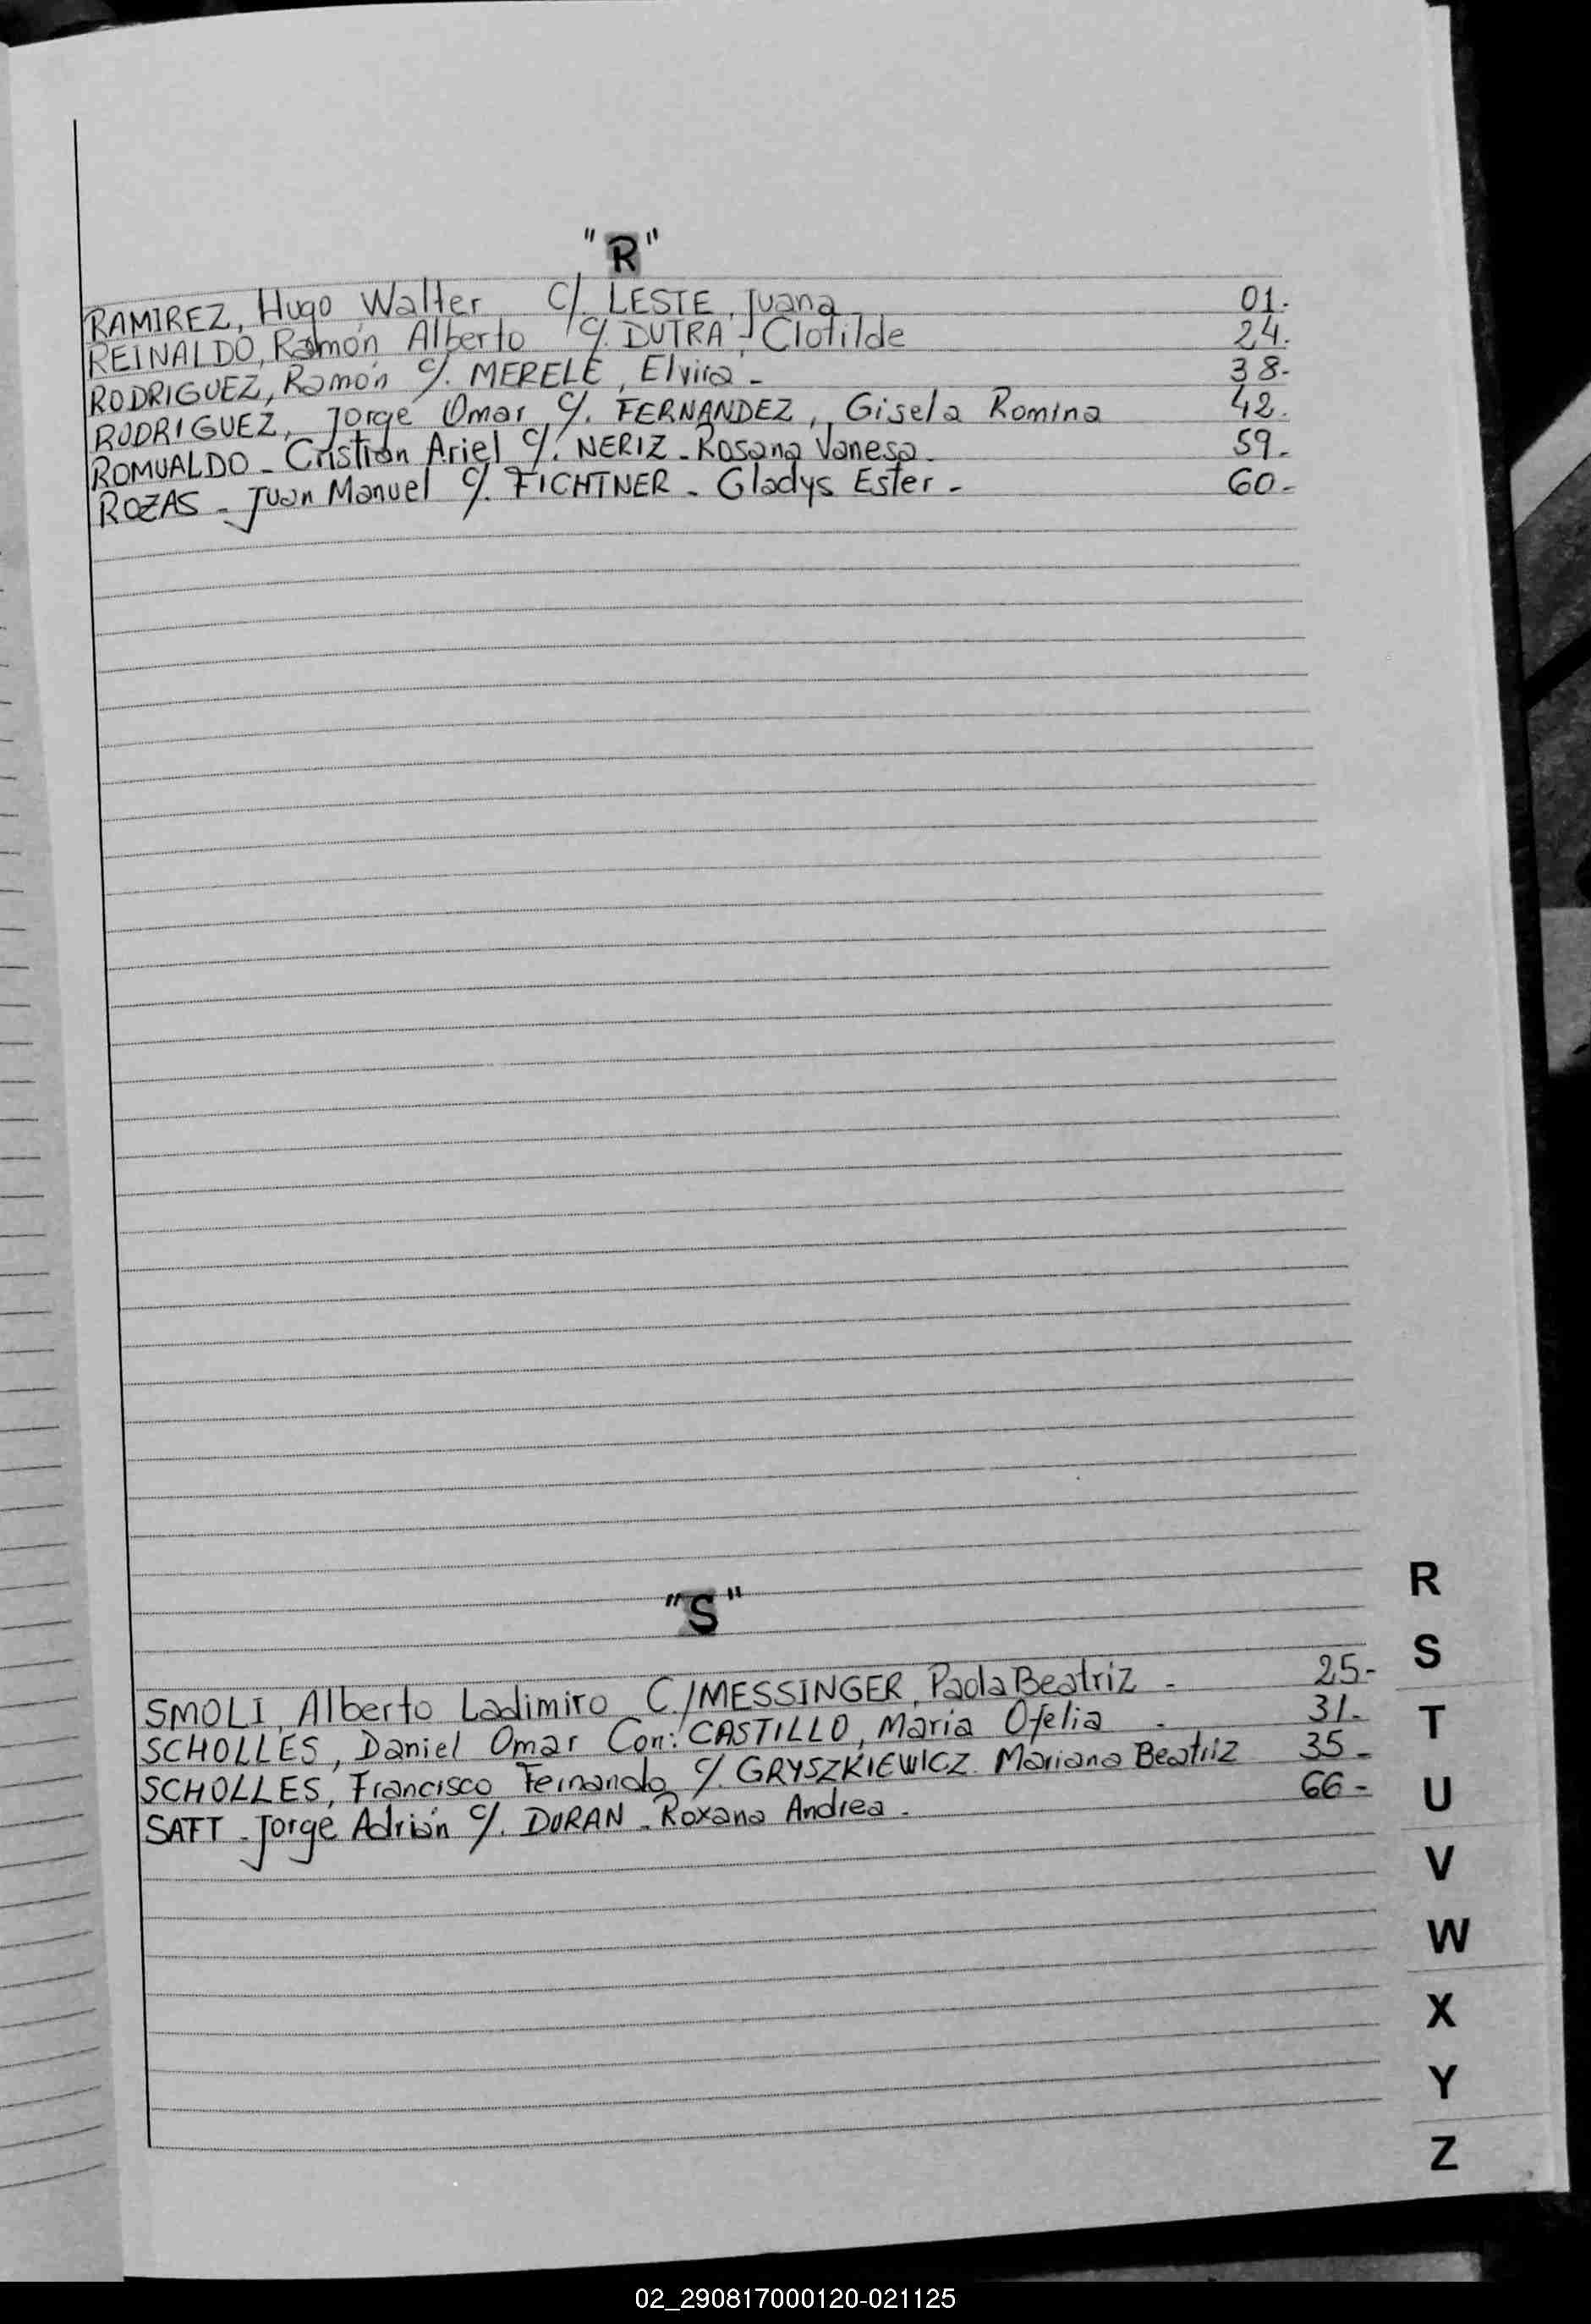 "R"
RAMIREZ, Hugo Walter C/. LESTE, Juana 01.
REINALDO, Ramón Alberto C/. DUTRA, Clotilde 24.
RODRIGUEZ, Ramón C/. MERELE, Elvira - 38-
RODRIGUEZ, Jorge Omar C/. FERNANDEZ, Gisela Romina 42.
ROMUALDO - Cristian Ariel C/. NERIZ - Rosana Vanesa. 59-
ROZAS - Juan Manuel C/. FICHTNER - Gladys Ester - 60-
"S"
SMOLI, Alberto Ladimiro C./MESSINGER, Paola Beatriz - 25-
SCHOLLES, Daniel Omar Con: CASTILLO, Maria Ofelia - 31-
SCHOLLES, Francisco Fernando C/. GRYSZKIEWICZ. Mariana Beatriz 35-
SATT - Jorge Adrián C/. DURAN - Roxana Andrea - 66-
R
S
T
U
V
W
X
Y
Z
02_290817000120-021125